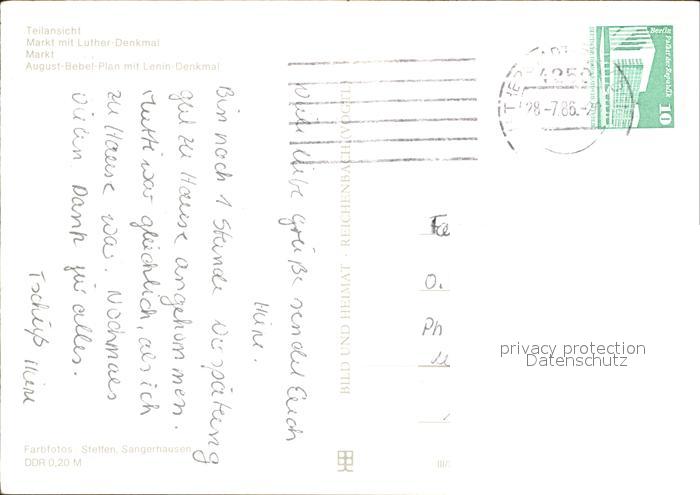 Teilansicht
Markt mit Luther-Denkmal
Markt
August-Bebel-Plan mit Lenin-Denkmal
Viele liebe Grüße sendet Euch
Heine.
Bin nach 1 Stunde Verspätung
gut zu Hause angekommen.
Mutti war glücklich, als ich
zu Hause war. Nochmals
vielen Dank für alles.
Tschüß Heine
Farbfotos: Stetten, Sangerhausen
DDR 0,20 M
BILD UND HEIMAT · REICHENBACH (VOGTL)
28.-7.86.
Berlin Palast der Republik
10
Fa
O.
Ph
privacy protection
Datenschutz